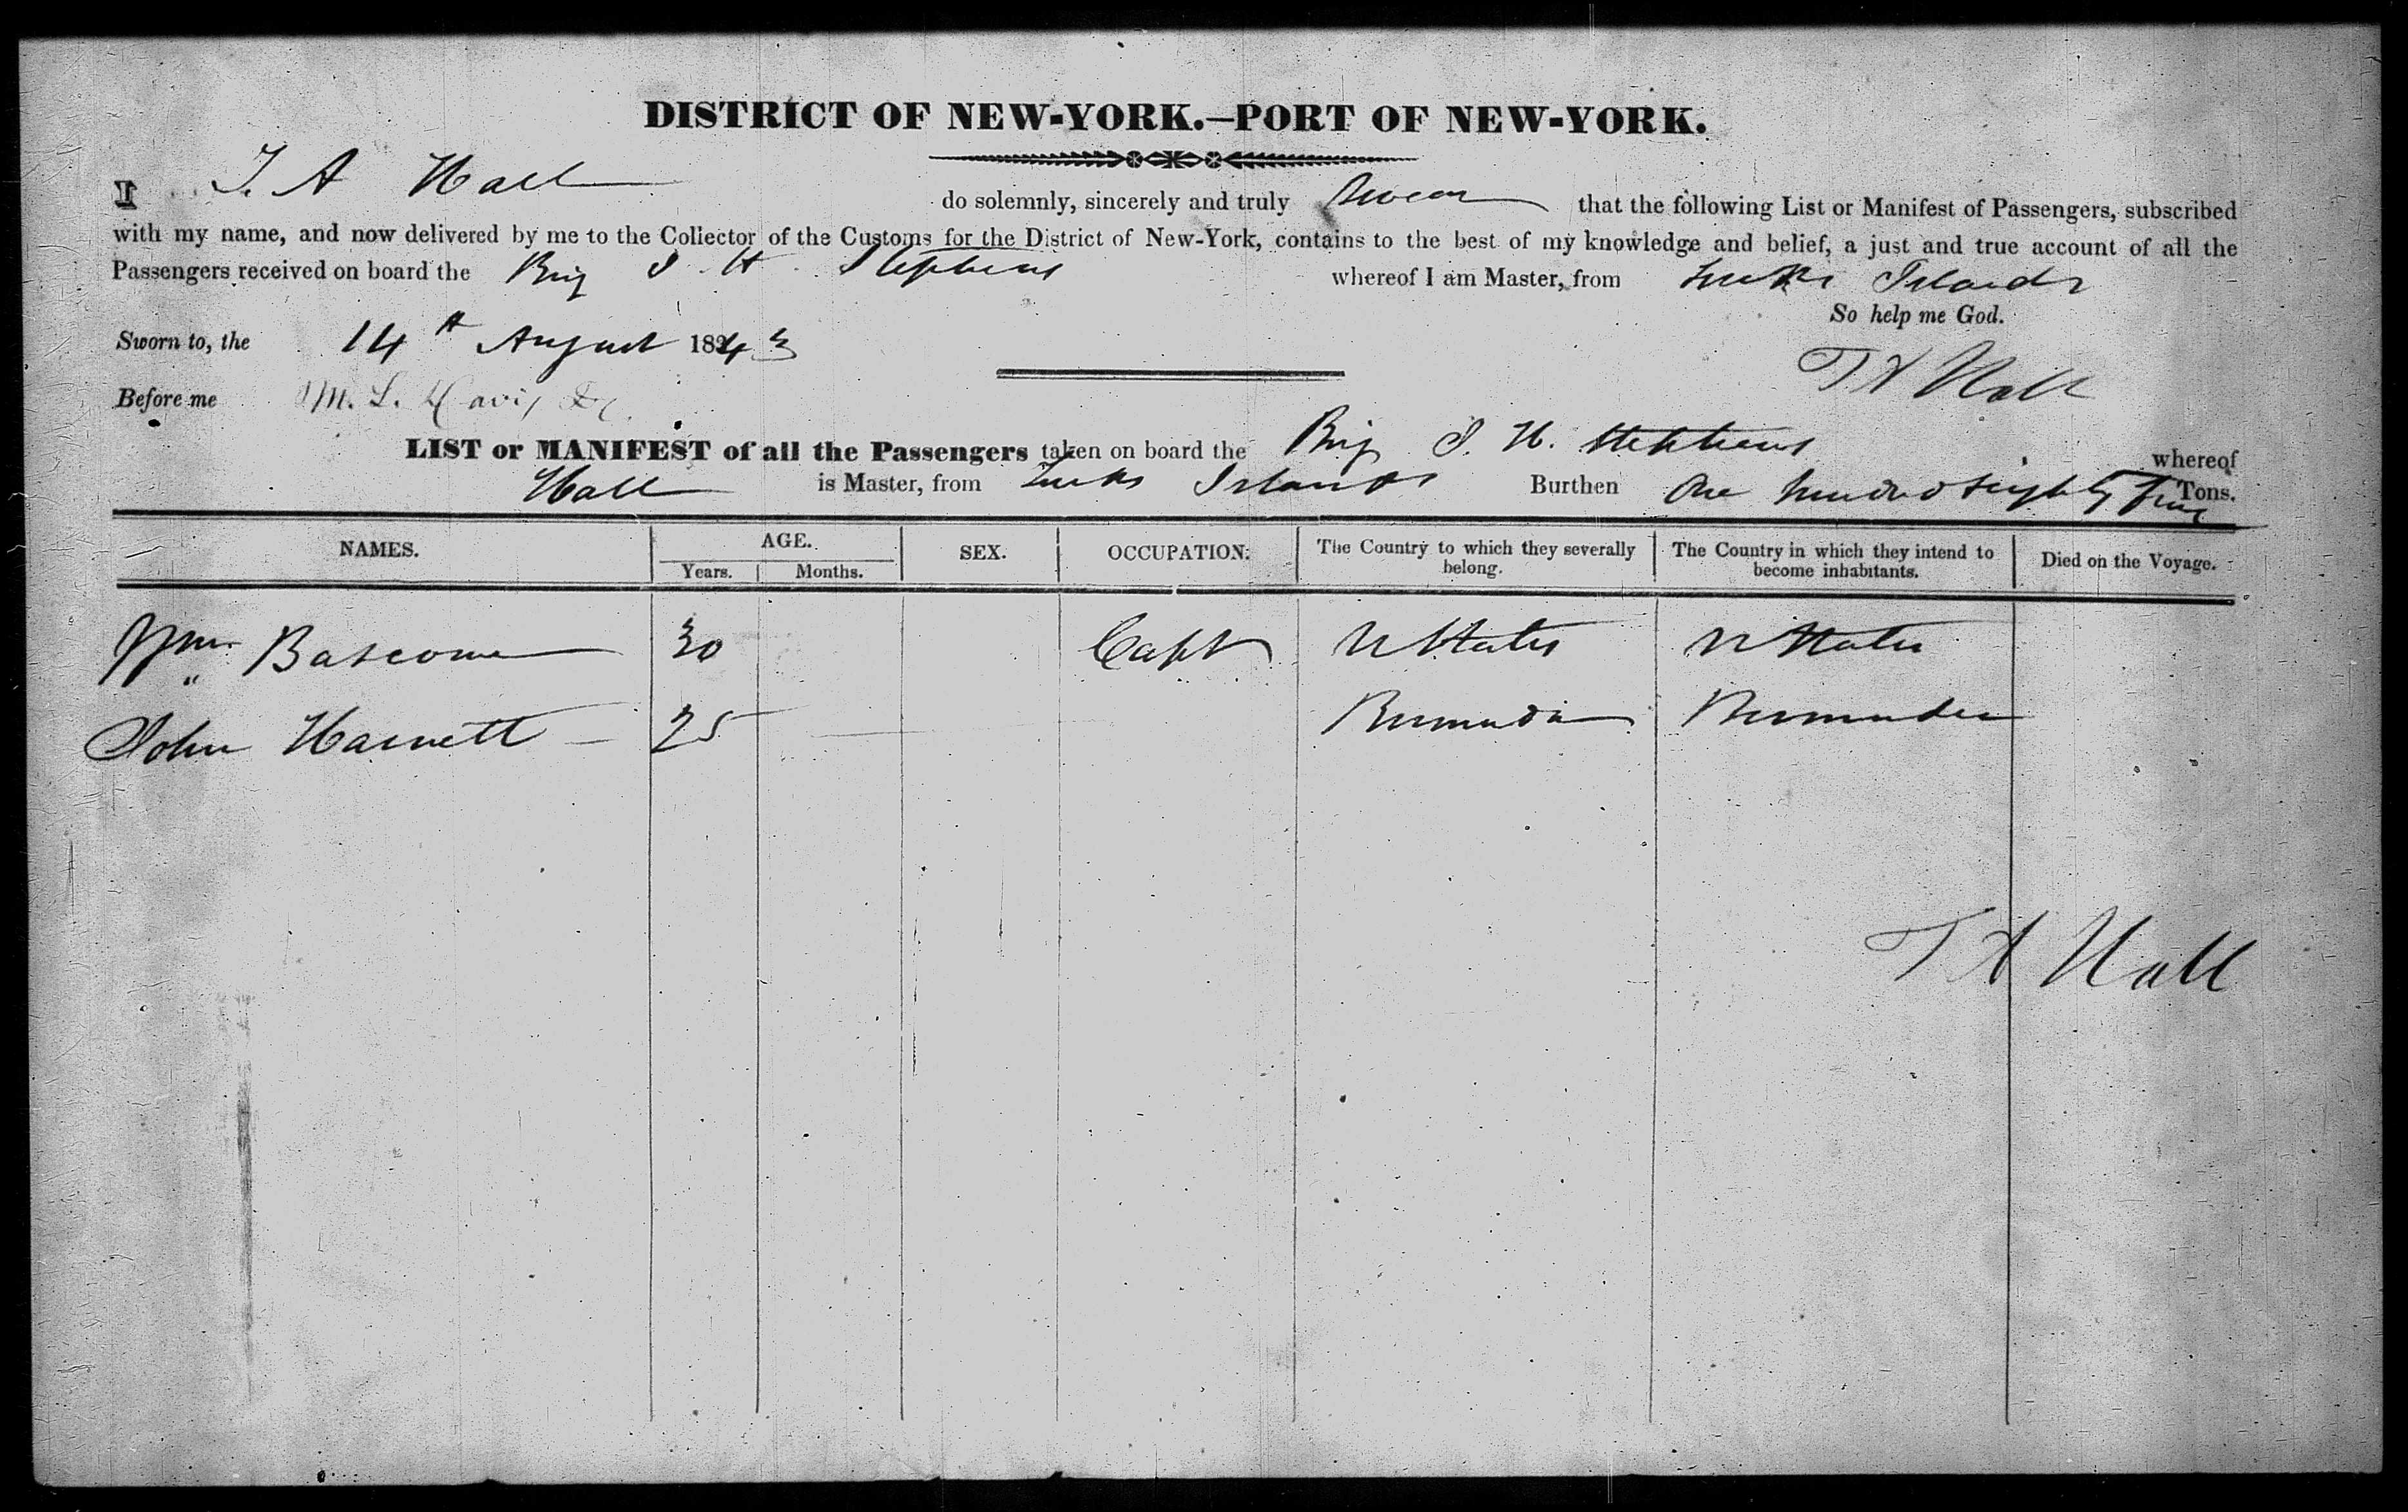 DISTRICT OF NEW-YORK.—PORT OF NEW-YORK.
I T. A Hall do solemnly, sincerely and truly Swear that the following List or Manifest of Passengers, subscribed
with my name, and now delivered by me to the Collector of the Customs for the District of New-York, contains to the best of my knowledge and belief, a just and true account of all the
Passengers received on board the Brig J. H. Stephens whereof I am Master, from Turks Islands
So help me God.
Sworn to, the 14th August 1843
T A Hall
Before me M. L. Davis
LIST or MANIFEST of all the Passengers taken on board the Brig J. H. Stephens whereof
Hall is Master, from Turks Islands Burthen One hundred & eighty Tons.
NAMES. AGE. SEX. OCCUPATION. The Country to which they severally belong. The Country in which they intend to become inhabitants. Died on the Voyage.
Years. Months.
Wm. Bascome 30 Capt U States U States
John Harnett 25 Bermuda Bermuda
T A Hall